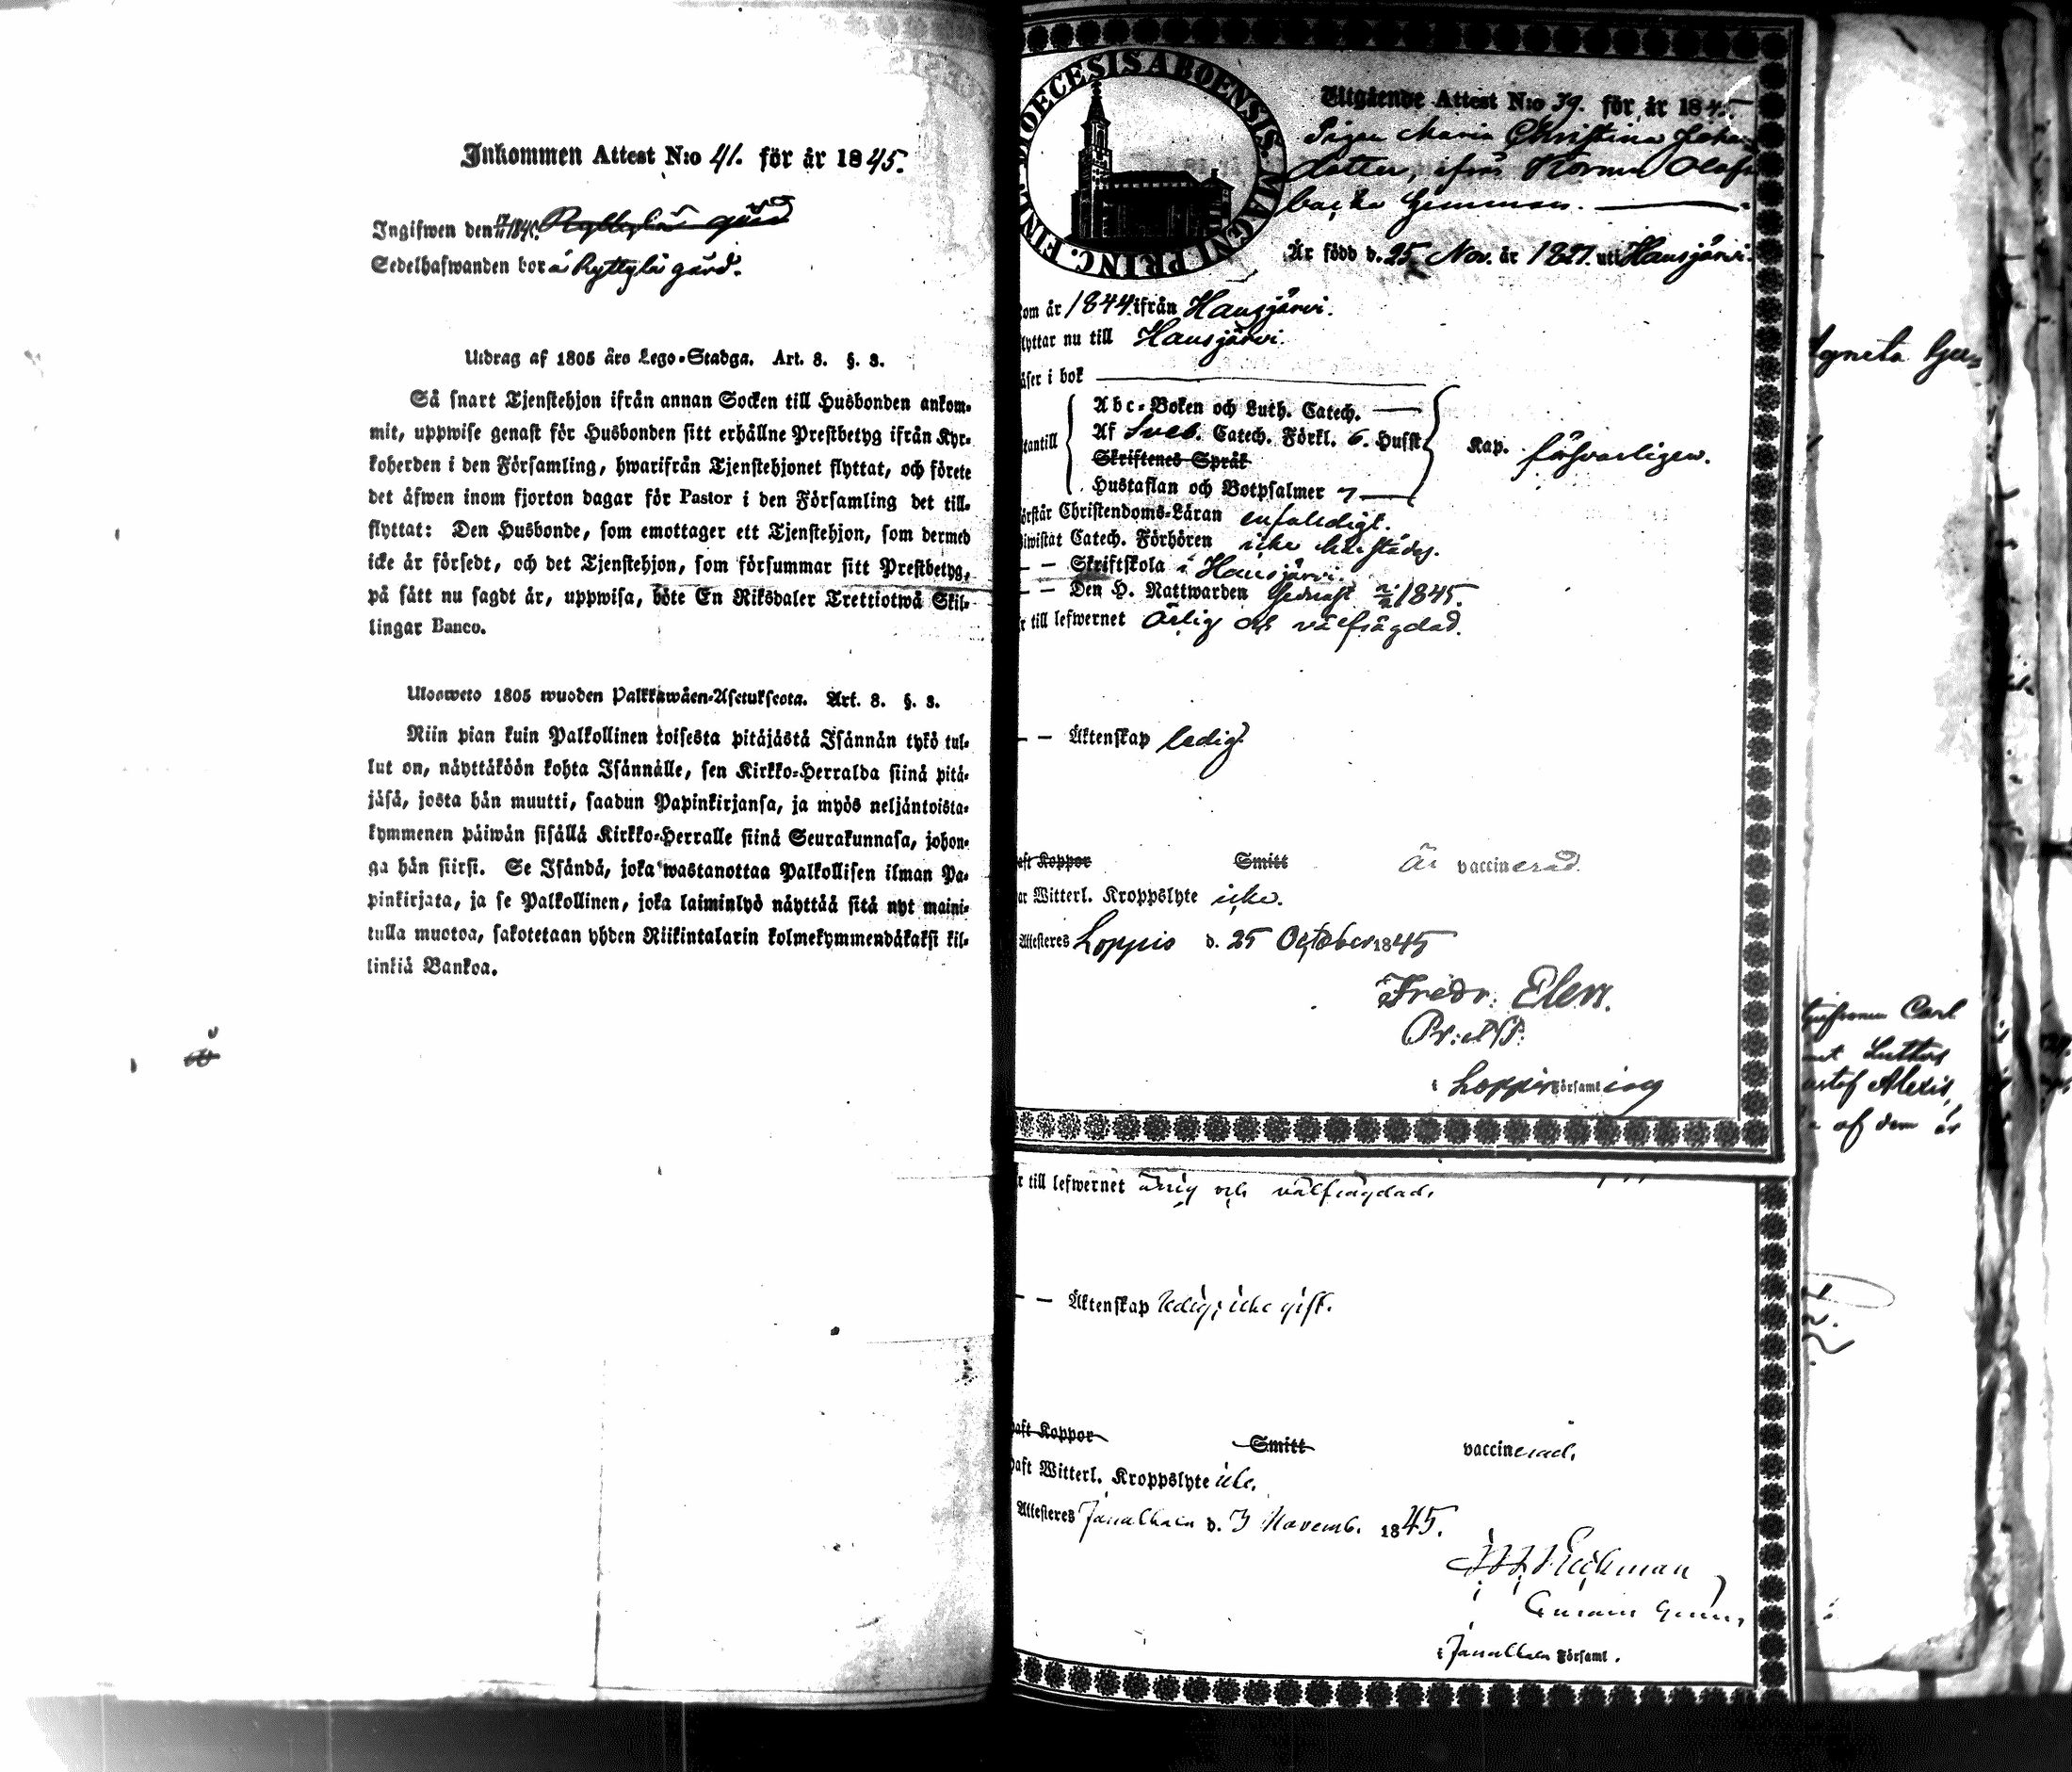 Inkommen Attest N:o 41. för år 1845.
Ingifwen den 1845. Ryttylä gård
Sedelhafwanden bor å Ryttylä gård.
Utdrag af 1805 års Lego-Stadga. Art. 8. §. 3.
Så snart Tjenstehjon ifrån annan Socken till Husbonden ankom-
mit, uppwise genast för Husbonden sitt erhållne Prestbetyg ifrån Kyr-
koherden i den Församling, hwarifrån Tjenstehjonet flyttat, och förete
det äfwen inom fjorton dagar för Pastor i den Församling det till-
flyttat: Den Husbonde, som emottager ett Tjenstehjon, som dermed
icke är försedt, och det Tjenstehjon, som försummar sitt Prestbetyg,
på sätt nu sagdt är, uppwisa, böte En Riksdaler Trettiotwå Skil-
lingar Banco.
Ulosweto 1805 wuoden Palkkawäen-Asetuksesta. Art. 8. §. 3.
Niin pian kuin Palkollinen toisesta pitäjästä Isännän tykö tul-
lut on, näyttäköön kohta Isännälle, sen Kirkko-Herralda siinä pitä-
jäsä, josta hän muutti, saadun Papinkirjansa, ja myös neljäntoista-
kymmenen päiwän sisällä Kirkko-Herralle siinä Seurakunnasa, johon-
ga hän siirsi. Se Isändä, joka wastanottaa Palkollisen ilman Pa-
pinkirjata, ja se Palkollinen, joka laiminlyö näyttää sitä nyt maini-
tulla muotoa, sakotetaan yhden Riikintalarin kolmekymmendäkaksi kil-
linkiä Bankoa.
DIOECESIS ABOENSIS. MAGNI PRINC. FINL.
Utgående Attest N:o 39. för år 1845
Pigan Maria Christina Johans
dotter, ifrån Kormu Olafs
backa hemman.
Är född d. 25 Nov. år 1827. uti Hausjärvi.
om år 1844. ifrån Hausjärvi.
lyttar nu till Hausjärvi.
äser i bok
Abc-Boken och Luth. Catech.
tantill Af Sveb. Catech. Förkl. 6. Husst. Kap. försvarligen.
Skriftenes Språk
Hustaflan och Botpsalmer 7
örstår Christendoms-Läran enfaldigt.
iwistat Catech. Förhören icke härstädes.
— — Skriftskola i Hausjärvi.
— — Den H. Nattwarden senast 1845.
r till lefwernet ärlig och välfrägdad.
— — Äktenskap ledig.
aft Koppor Smitt Är vaccinerad.
ar Witterl. Kroppslyte icke.
Attesteres Loppis d. 25 October 1845
Fredr. Elers.
i Loppis Församling
r till lefwernet ärlig och välfrägdad.
— — Äktenskap ledig, icke gift.
haft Koppor Smitt vaccinerad.
haft Witterl. Kroppslyte icke.
Attesteres Janakkala d. 3 Novemb. 1845.
i Janakkala Församl.
gneta Gu-
Carl
Luthers
ustaf Alexis,
af dem är